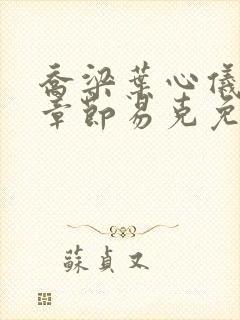 喬梁葉心儀
章節易克免
蘇貞又